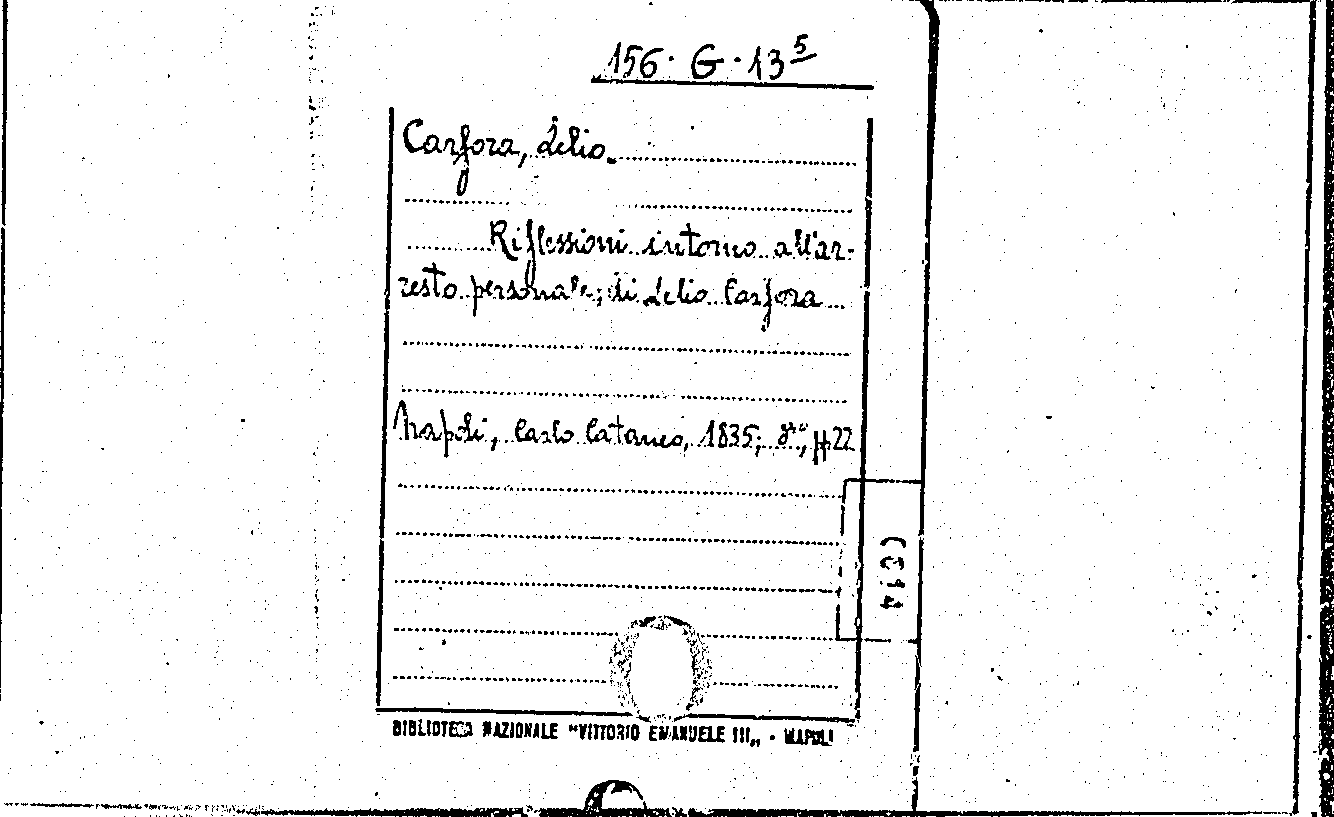 156. G. 13 5
Carfora, Lelio.
Riflessioni intorno all'ar-
resto personale; di Lelio Carfora
Napoli, Carlo Cataneo, 1835; 8vo, pp 22
BIBLIOTECA NAZIONALE "VITTORIO EMANUELE III„ - NAPOLI